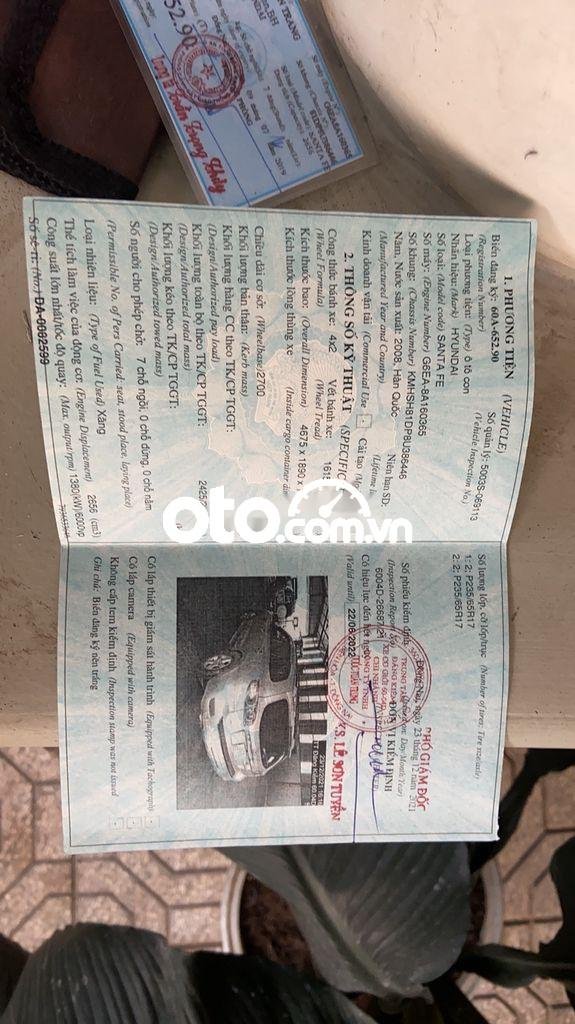 1. PHƯƠNG TIỆN (VEHICLE)
Biển đăng ký: 60A-652.90
(Registration Number)
Số quản lý: 5003S-069113
(Vehicle Inspection No.)
Loại phương tiện: (Type) ô tô con
Nhãn hiệu: (Mark) HYUNDAI
Số loại: (Model code) SANTA FE
Số máy: (Engine Number) G6EA-8A160365
Số khung: (Chassis Number) KMHSH81DP8U386446
Năm, Nước sản xuất: 2008, Hàn Quốc
Niên hạn SD:
(Manufactured Year and Country)
(Lifetime
Kinh doanh vận tải (Commercial Use)
Cải tạo
2. THÔNG SỐ KỸ THUẬT (SPECIFIC
Công thức bánh xe: 4x2
Vết bánh xe: 1615
(Wheel Formula)
(Wheel Tread)
Kích thước bao: (Overall Dimension) 4675 x 1890 x
Kích thước lòng thùng xe
(Inside cargo container
Chiều dài cơ sở: (Wheelbase) 2700
Khối lượng bản thân: (Kerb mass)
Khối lượng hàng CC theo TK/CP TGGT:
(Design/Authorized pay load)
Khối lượng toàn bộ theo TK/CP TGGT:
(Design/Authorized total mass)
Khối lượng kéo theo TK/CP TGGT:
(Design/Authorized towed mass)
Số người cho phép chở: 7 chỗ ngồi, 0 chỗ đứng, 0 chỗ nằm
(Permissible No. of Pers Carried: seat, stood place, laying place)
Loại nhiên liệu: (Type of Fuel Used) Xăng
Thể tích làm việc của động cơ: (Engine Displacement) 2656 (cm3)
Công suất lớn nhất/tốc độ quay: (Max. output/rpm) 138(kW)/6000vp
Số sê-ri: (No.) DA-0082599
Số lượng lốp, cỡ lốp/trục (Number of tires; Tire size/axle)
1: 2; P235/65R17
2: 2; P235/65R17
Đồng Nai, ngày 23 tháng 12 năm 2021
Số phiếu kiểm định
ĐƠN VỊ KIỂM ĐỊNH
(Inspection Report No)
PHÓ GIÁM ĐỐC
6004D-26687/21
Có hiệu lực đến hết ngày
(Valid until) 22/06/2022
K.S. LÊ SƠN TUYỀN
23/12/2021
Có lắp thiết bị giám sát hành trình (Equipped with Tachograph)
Có lắp camera (Equipped with camera)
Không cấp tem kiểm định (Inspection stamp was not issued)
Ghi chú: Biển đăng ký nền trắng
oto.com.vn